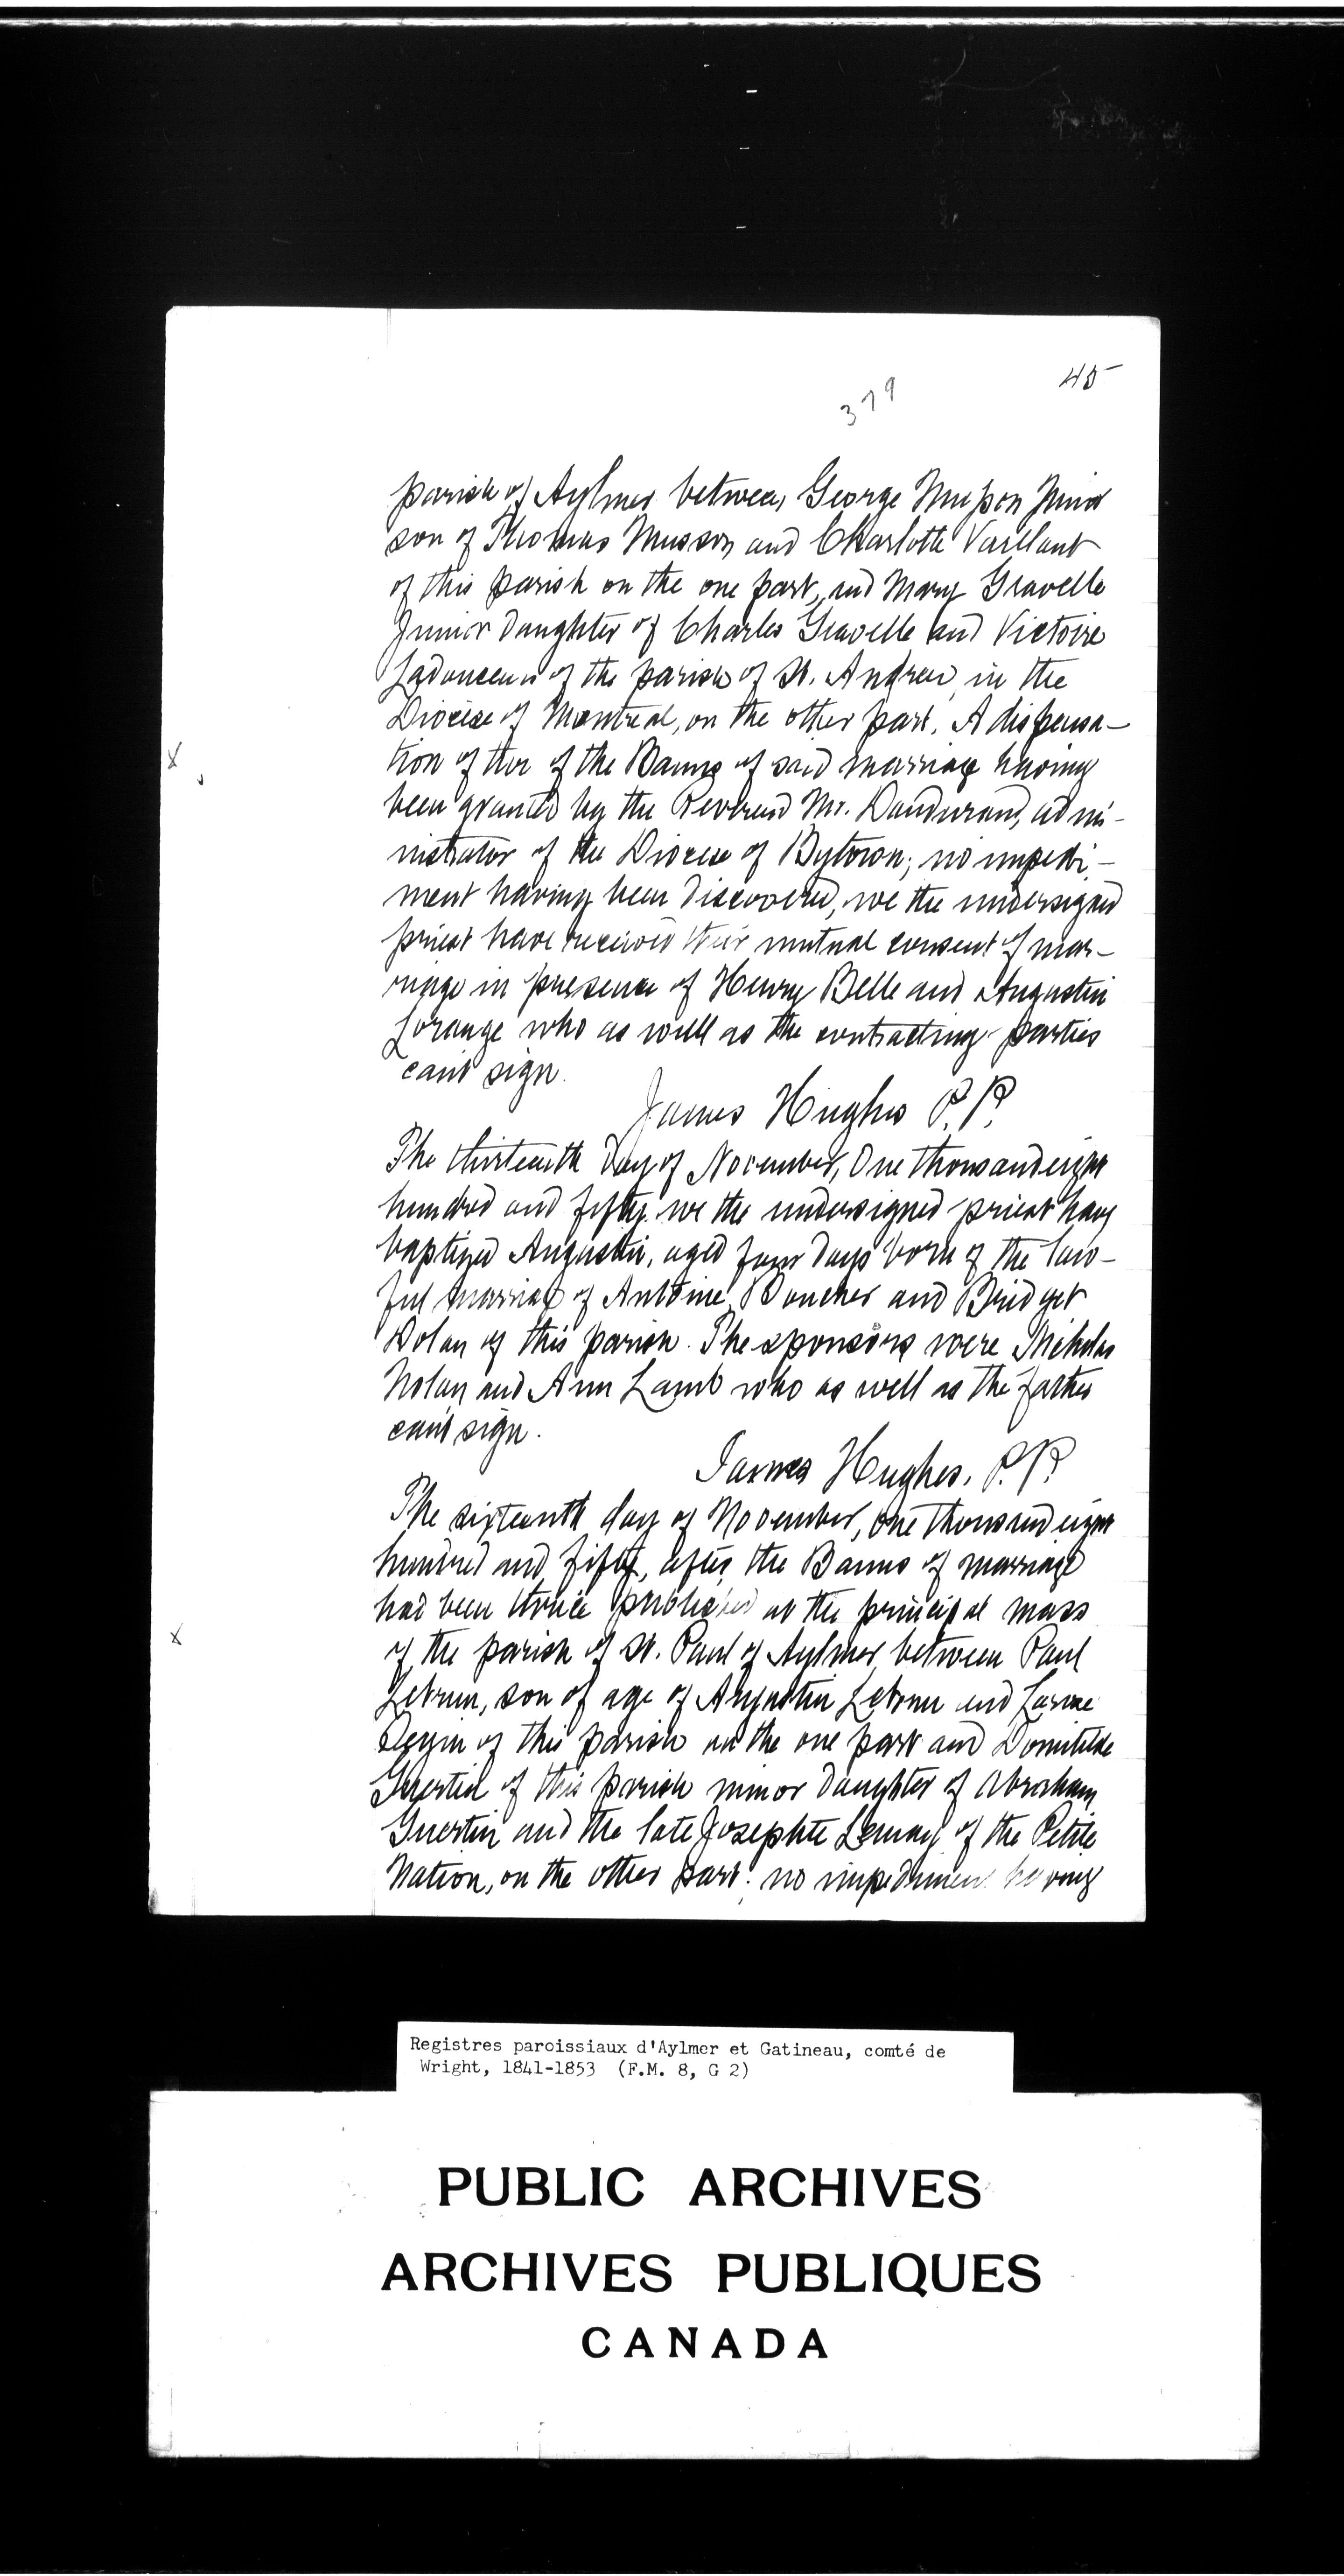 45
379
parish of Aylmer between George Musson
son of Thomas Musson and Charlotte Vaillant
of this parish on the one part, and Mary Gravelle
Junior daughter of Charles Gravelle and Victoire
Ladouceur of the parish of St. Andrew, in the
Diocese of Montreal, on the other part. A dispensa-
tion of two of the Banns of said marriage having
been granted by the Reverend Mr. Dandurand, admi-
nistrator of the Diocese of Bytown; no impedi-
ment having been discovered, we the undersigned
priest have received their mutual consent of mar-
riage in presence of Henry Belle and Augustin
Lorange who as well as the contracting parties
can't sign.
James Hughes P.P.
The thirteenth day of November, One thousand eight
hundred and fifty we the undersigned priest have
baptized Augustin, aged four days born of the law-
ful marriage of Antoine Boucher and Bridget
Dolan of this parish. The sponsors were Nicholas
Nolan and Ann Lamb who as well as the father
can't sign.
James Hughes. P.P.
The sixteenth day of November, one thousand eight
hundred and fifty, after the Banns of marriage
had been thrice published at the principal mass
of the parish of St. Paul of Aylmer, between Paul
Lebrun, son of age of Augustin Lebrun and
of this parish on the one part and Domitilde
Guertin of this parish minor daughter of Abraham
Guertin and the late Josephte Lemay of the Petite
Nation, on the other part: no impediment having
Registres paroissiaux d'Aylmer et Gatineau, comté de
Wright, 1841-1853 (F.M. 8, G 2)
PUBLIC ARCHIVES
ARCHIVES PUBLIQUES
CANADA